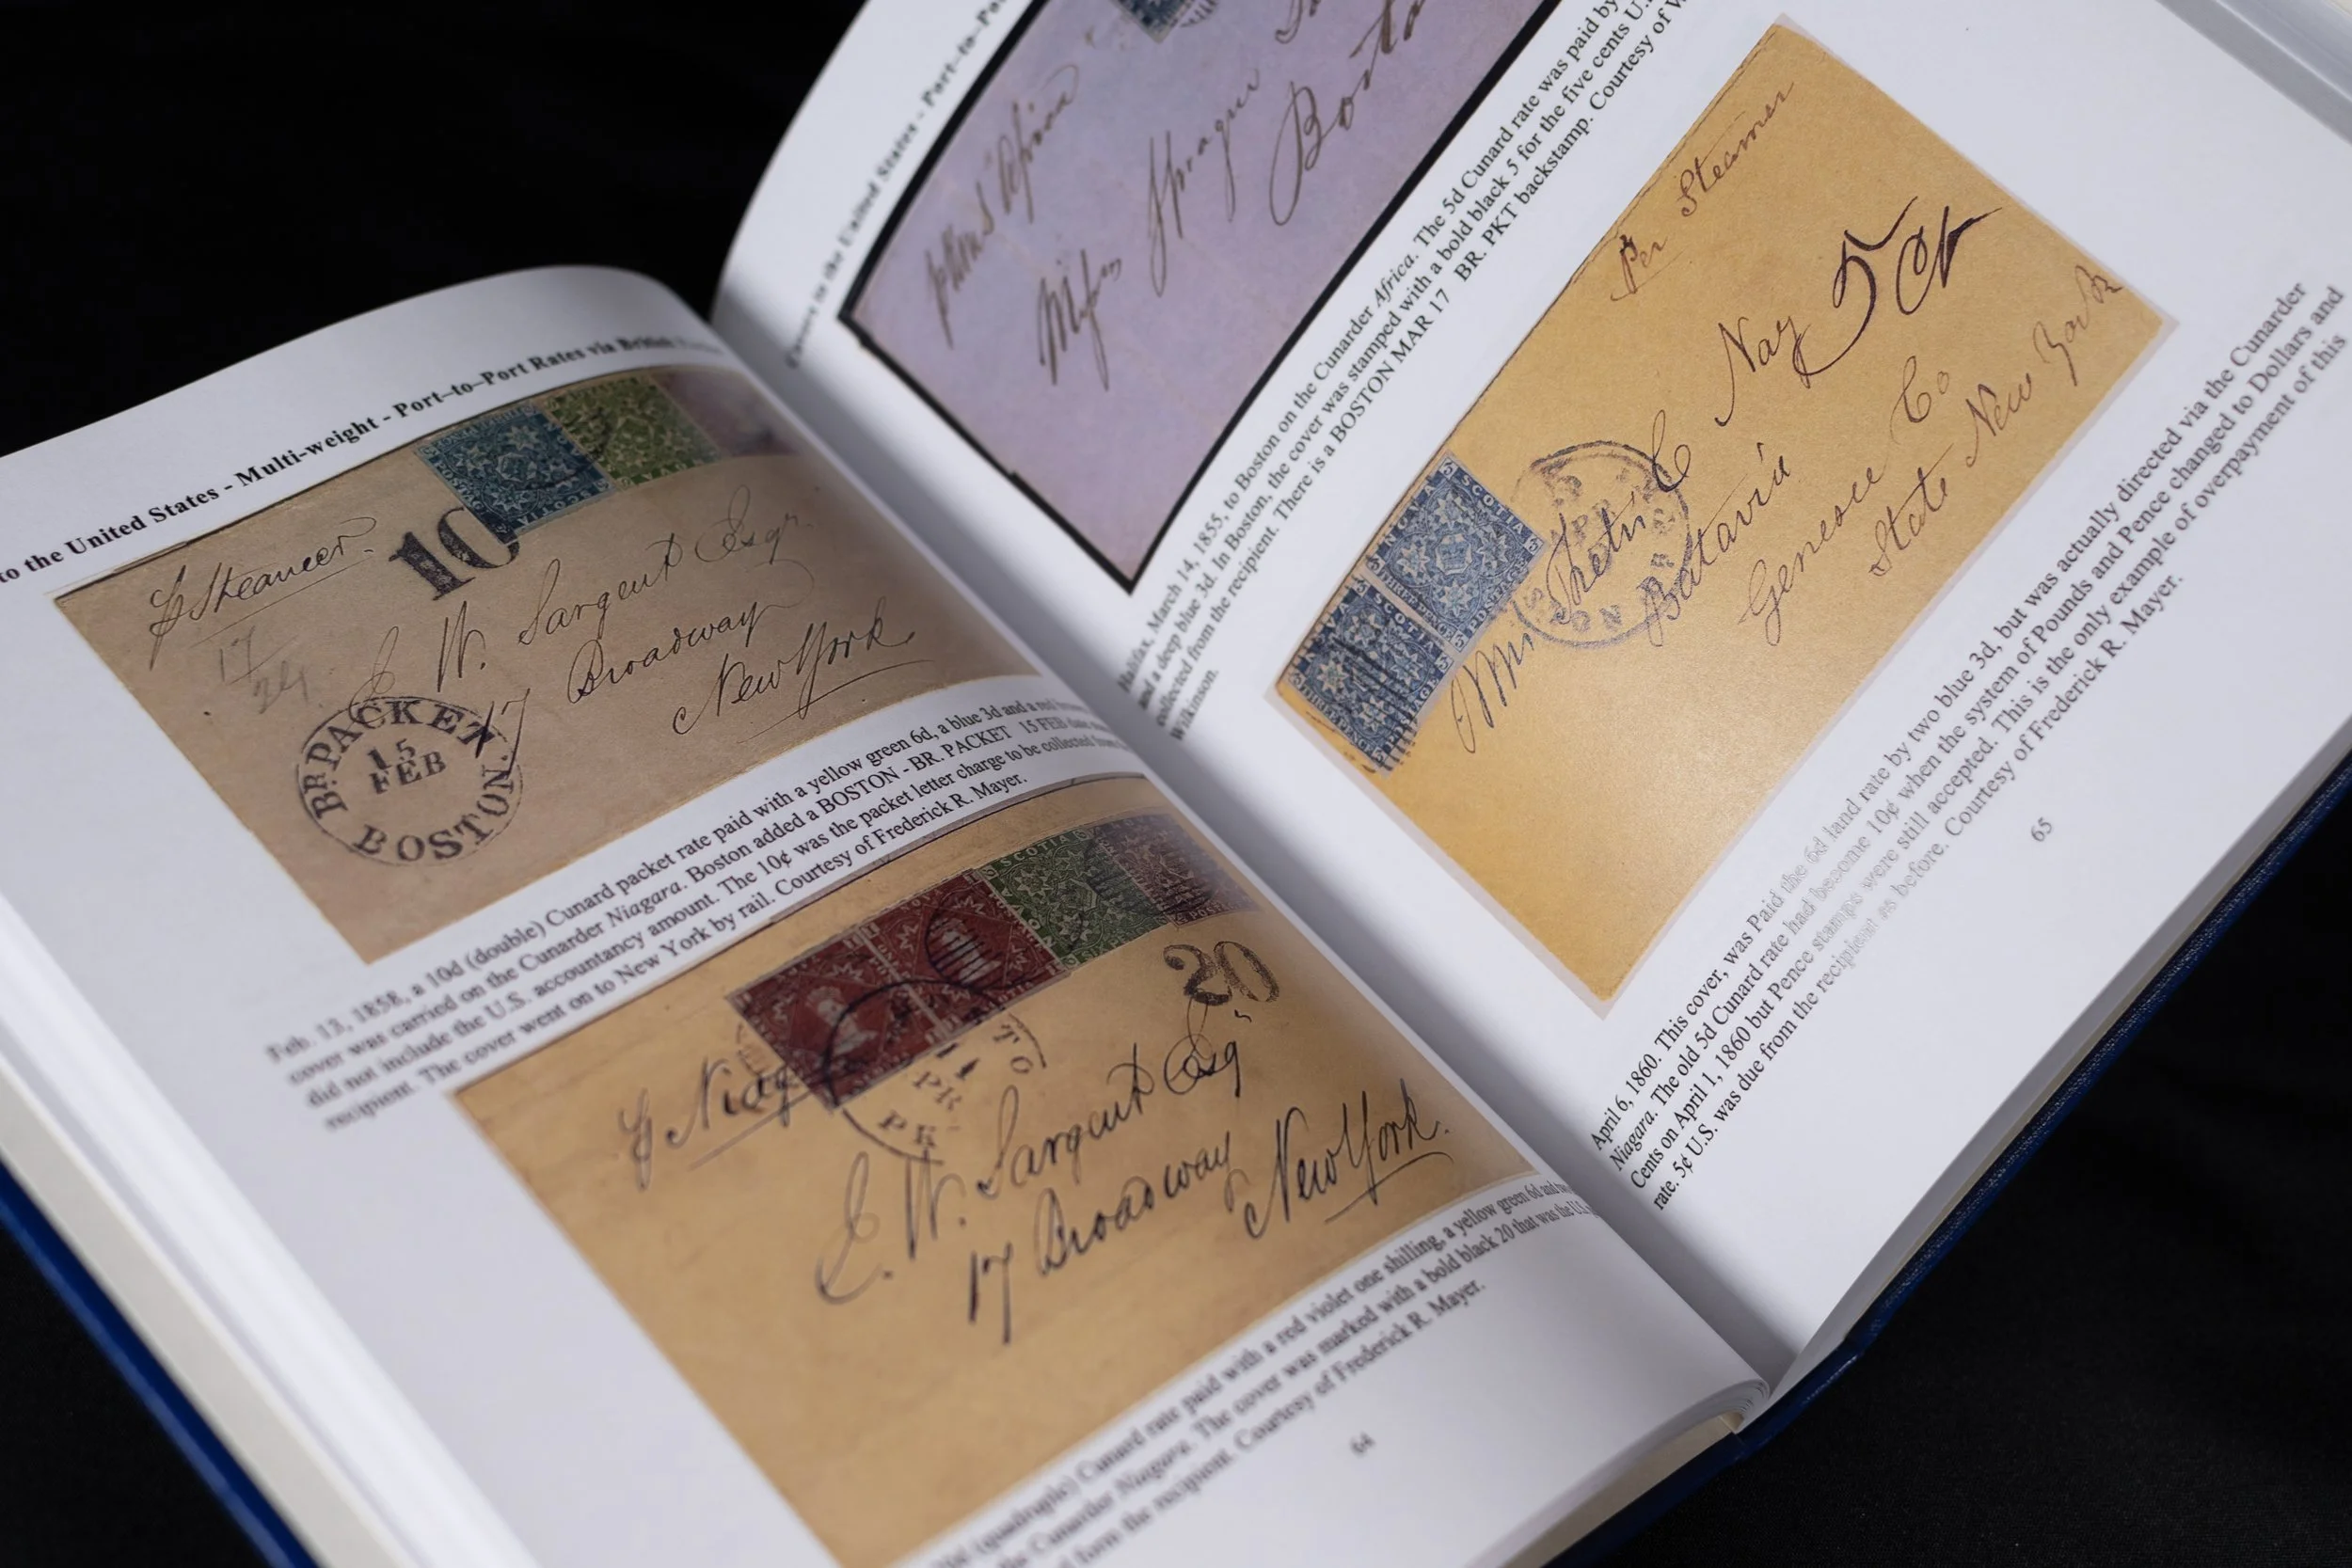 to the United States - Multi-weight - Port-to-Port Rates via British
Steamer.
10
17
24
E W. Sargent Esqr.
17 Broadway
New York
BR. PACKET
15
FEB
BOSTON.
SCOTIA
Feb. 13, 1858, a 10d (double) Cunard packet rate paid with a yellow green 6d, a blue 3d and a red
cover was carried on the Cunarder Niagara. Boston added a BOSTON - BR. PACKET 15 FEB
did not include the U.S. accountancy amount. The 10¢ was the packet letter charge to be collected from
recipient. The cover went on to New York by rail. Courtesy of Frederick R. Mayer.
SCOTIA
20
Niag
TO
14
PR
PK
E. W. Sargent Esq
17 Broadway
New York.
(quadruple) Cunard rate paid with a red violet one shilling, a yellow green 6d and
the Cunarder Niagara. The cover was marked with a bold black 20 that was the U.S.
form the recipient. Courtesy of Frederick R. Mayer.
64
to the United States - Port-to-
Miss Sprague
Boston
Halifax, March 14, 1855, to Boston on the Cunarder Africa. The 5d Cunard rate was paid by
and a deep blue 3d. In Boston, the cover was stamped with a bold black 5 for the five cents U.
collected from the recipient. There is a BOSTON MAR 17 BR. PKT backstamp. Courtesy of
Wilkinson.
Per Steamer
5 Ct
Mrs C Nay
Batavia
Genesee Co
State New York
SCOTIA
SCOTIA
April 6, 1860. This cover, was Paid the 6d land rate by two blue 3d, but was actually directed via the Cunarder
Niagara. The old 5d Cunard rate had become 10¢ when the system of Pounds and Pence changed to Dollars and
Cents on April 1, 1860 but Pence stamps were still accepted. This is the only example of overpayment of this
rate. 5¢ U.S. was due from the recipient as before. Courtesy of Frederick R. Mayer.
65